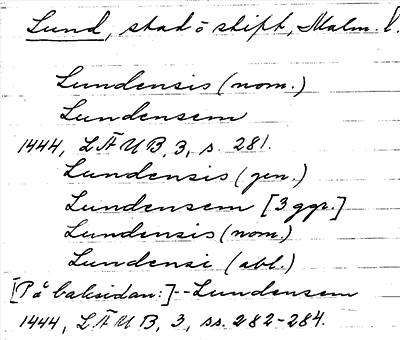 Lund, stad o stift, Malm. l.
Lundensis (nom.)
Lundensem
1444, LÄUB, 3, s. 281.
Lundensis (gen.)
Lundensem [3 ggr.]
Lundensis (nom.)
Lundensi (abl.)
[På baksidan:]--Lundensem
1444, LÄUB, 3, ss. 282-284.